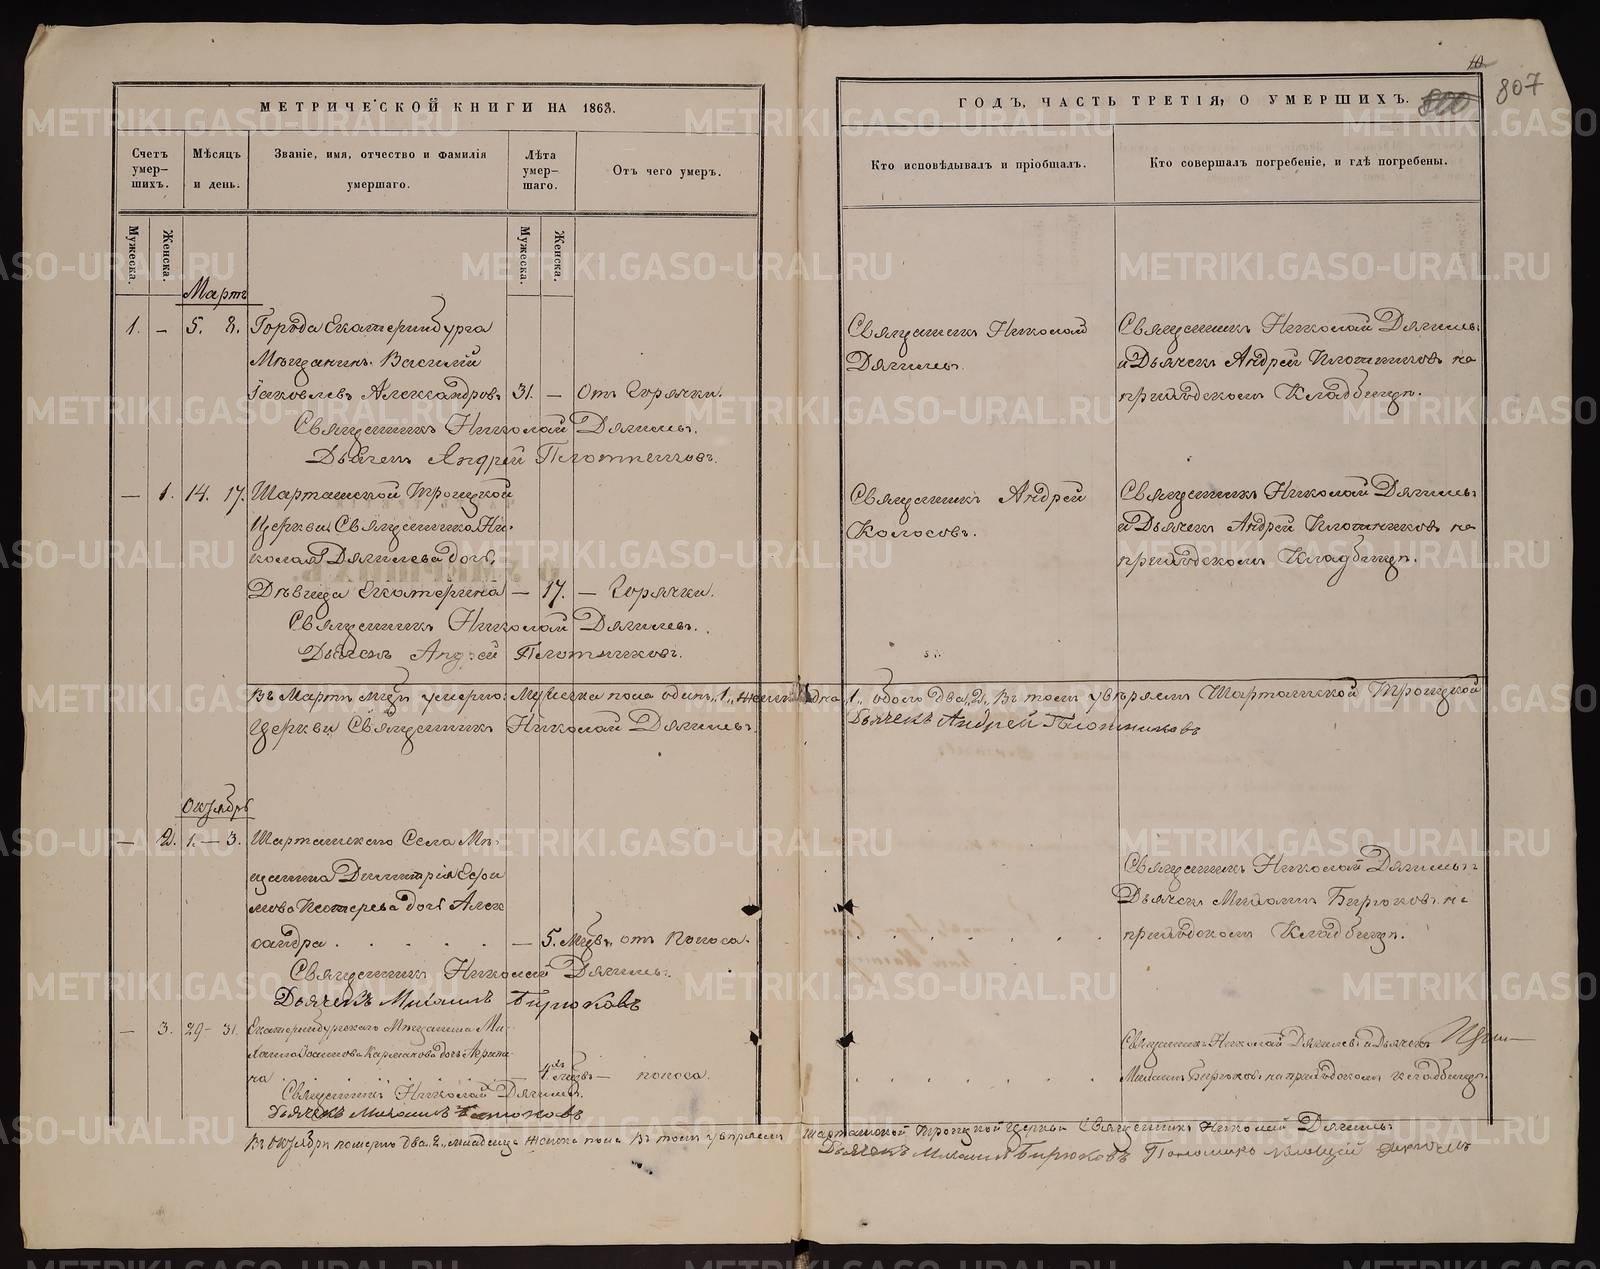 МЕТРИЧЕСКОЙ КНИГИ НА 1863.
Счетъ умер-шихъ.
Мѣсяцъ и день.
Званіе, имя, отчество и фамилія умершаго.
Лѣта умер-шаго.
Отъ чего умеръ.
Мужеска.
Женска.
Мужеска.
Женска.
Мартъ
1. – 5. 8. Города Екатеринбурга
Мѣщанинъ Василій
Іаковлевъ Александровъ 31. – отъ Горячки.
Священникъ Николай Дягилевъ.
Дьячекъ Андрей Плотниковъ.
– 1. 14. 17. Шарташской Троицкой
Церкви Священника Ни-
колая Дягилева дочь,
Дѣвица Екатерина – 17. – Горячки.
Священникъ Николай Дягилевъ.
Дьячекъ Андрей Плотниковъ.
Въ Мартѣ мѣсяцѣ умерло: Мужеска пола одинъ „1„ женска одна
Церкви Священникъ Николай Дягилевъ.
Октябрь
– 2. 1. – 3. Шарташскаго Села Мѣ-
щанина Димитрія Ефи
мова дочь Алек
сандра . . . . . – 5. мѣс. отъ поноса.
Священникъ Николай Дягилевъ.
Дьячекъ Михаилъ Бирюковъ
– 3. 29 – 31. Екатеринбургскаго Мѣщанина Ми-
хаила Іоаннова дочь
на . . . . . – 4. мѣс. – поноса.
Священникъ Николай Дягилевъ.
Дьячекъ Михаилъ Бирюковъ
Въ Октябрѣ померло два, 2, младенца женска пола въ томъ увѣряемъ
10
807
800
ГОДЪ, ЧАСТЬ ТРЕТІЯ, О УМЕРШИХЪ.
Кто исповѣдывалъ и пріобщалъ.
Кто совершалъ погребеніе, и гдѣ погребены.
Священникъ Николай
Дягилевъ.
Священникъ Николай Дягилевъ
и Дьячекъ Андрей Плотниковъ на
приходскомъ Кладбищѣ.
Священникъ Андрей
Колосовъ.
Священникъ Николай Дягилевъ
и Дьячекъ Андрей Плотниковъ на
приходскомъ Кладбищѣ.
1„ обоего два „2„ Въ томъ увѣряемъ Шарташской Троицкой
Дьячекъ Андрей Плотниковъ
Священникъ Николай Дягилевъ и
Дьячекъ Михаилъ Бирюковъ на
приходскомъ Кладбищѣ.
Священникъ Николай Дягилевъ и Дьячекъ
Михаилъ Бирюковъ на приходскомъ кладбищѣ.
Шарташской Троицкой Церкви Священникъ Николай Дягилевъ
Дьячекъ Михаилъ Бирюковъ Пономарь
METRIKI.GASO-URAL.RU